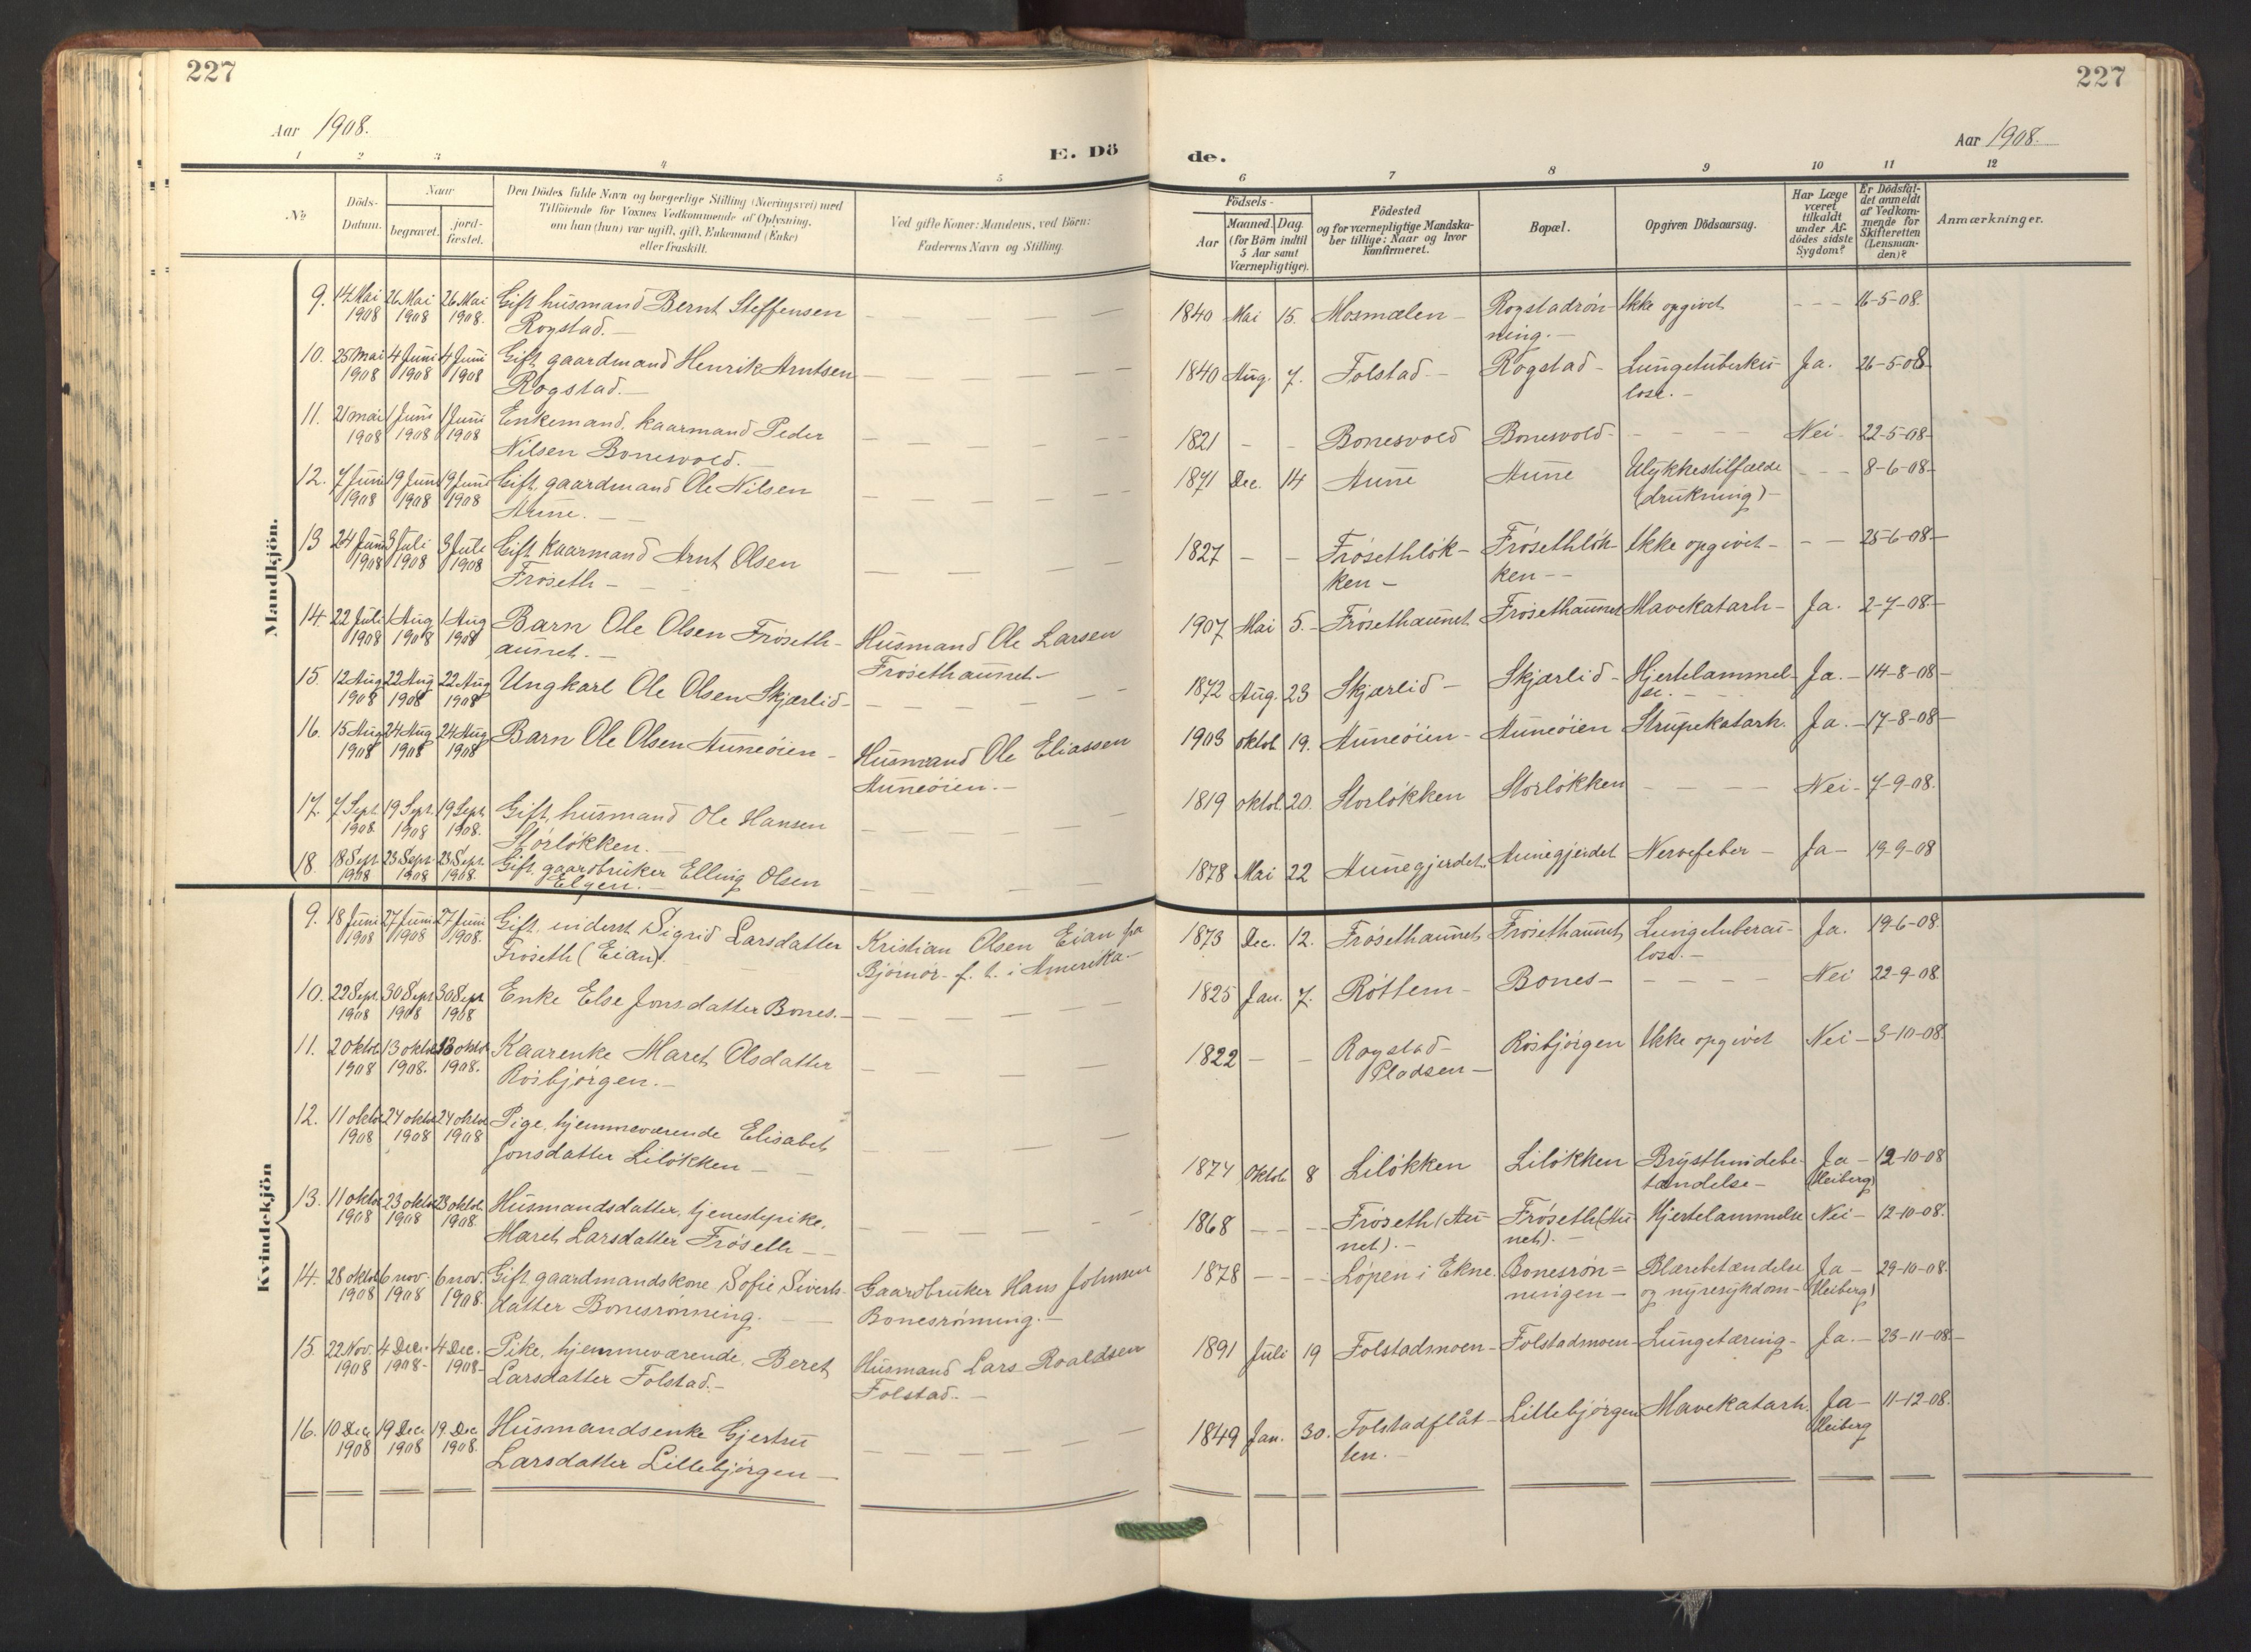 227
227
Aar 1908.
Aar 1908.
E. Dö
de.
1 2 3 4 5
6 7 8 9 10 11 12
№
Döds-
Datum.
Naar
begravet.
jord-
fæstet.
Den Dödes fulde Navn og borgerlige Stilling (Næringsvei) med
Tilföiende for Voxnes Vedkommende af Oplysning,
om han (hun) var ugift, gift, Enkemand (Enke)
eller fraskilt.
Ved gifte Koner: Mandens, ved Börn:
Faderens Navn og Stilling.
Födsels-
Aar
Maaned. Dag
(for Börn indtil
5 Aar samt
Værnepligtige).
Födested
og for værnepligtige Mandska-
ber tillige: Naar og hvor
konfirmeret.
Bopæl.
Opgiven Dödsaarsag.
Har Læge
været
tilkaldt
under Af-
dödes sidste
Sygdom?
Er Dödsfal-
det anmeldt
af Vedkom-
mende for
Skifteretten
(Lensman-
den)?
Anmærkninger.
Mandkjön.
9. 14 Mai 26 Mai 26 Mai Gift husmand Bernt Steffensen — — — — 1840 Mai 15. Mosmælen - Rogstadrön- Ikke opgivet - - - 16-5-08.
1908 1908 1908. Rogstad. — ning. —
10. 25 Mai 4 Juni 4 Juni Gift gaardmand Henrik Arntsen — — — — 1840 Aug. 7. Folstad - Rogstad - Lungetuberku- Ja. 26-5-08
1908 1908 1908 Rogstad. — lose. -
11. 21 mai 1 Juni 1 Juni Enkemand, kaarmand Peder — — — — 1821 - - Bonesvold Bonesvold - - - - Nei - 22-5-08-
1908 1908 1908 Nilsen Bonesvold. —
12. 7 Juni 19 Juni 19 Juni Gift gaardmand Ole Nilsen — — — — 1871 Dec. 14 Aune Aune Ulykkestilfælde - - - 8-6-08-
1908 1908 1908 Aune. — — (drukning) -
13 24 Juni 3 Juli 3 Juli Gift kaarmand Arnt Olsen — — — — 1827 - - Frösethlök- Frösethlök- Ikke opgivet - - - 25-6-08-
1908 1908 1908 Fröseth - ken - ken - -
14. 22 Juli 1 Aug 1 Aug Barn Ole Olsen Fröseth- Husmand Ole Larsen 1907 Mai 5. - Frösethaunet Frösethaunet Mavekatarh - Ja. 2-7-08-
1908 1908 1908 aunet. — Frösethaunet -
15. 12 Aug 22 Aug 22 Aug Ungkarl Ole Olsen Skjærlid - — — — — 1872 Aug. 23 Skjærlid - Skjærlid - Hjertelammel- Ja. - 14-8-08-
1908 1908 1908 se. -
16. 15 Aug 24 Aug 24 Aug Barn Ole Olsen Auneöien - Husmand Ole Eliassen 1903 oktob. 19. Auneöien - Auneöien Strupekatarh. Ja. - 17-8-08-
1908 1908 1908 Auneöien. —
17. 7 Sept. 19 Sept. 19 Sept. Gift, husmand Ole Hansen — — — — 1819 oktob. 20. Storlökken Storlökken - - - - Nei - 7-9-08.
1908. 1908 1908. Storlökken. —
18. 18 Sept. 23 Sept. 23 Sept. Gift, gaardbruker Elling Olsen — — — — 1878 Mai 22 Aunegjerdet. Aunegjerdet Nervefeber - Ja - 19-9-08
1908 1908 1908. Elgen. —
Kvindekjön
9. 18 Juni 27 Juni 27 Juni Gift, inderst Sigrid Larsdatter Kristian Olsen Eian fra 1873 Dec. 12. Frösethaunet Frösethaunet Lungetuberku- Ja. 19-6-08.
1908 1908 1908. Fröseth (Eian). Björnör - f. t. i Amerika - lose. -
10. 22 Sept. 30 Sept 30 Sept Enke Else Jonsdatter Bones. - — — — — 1825 Jan. 7. Röttem - Bones - - - - - Nei 22-9-08.
1908 1908 1908
11. 2 oktob 13 oktob 13 oktob Kaarenke Maret Olsdatter — — — — 1822 - - Rogstad- Rösbjörgen Ikke opgivet Nei - 3-10-08
1908 1908. 1908. Rösbjörgen. — Pladsen -
12. 11 oktob 24 oktob 24 oktob Pige, hjemmeværende Elisabet — — — —
1908 1908 1908 Jonsdatter Lilökken — — 1874 Oktob 8 Lilökken Lilökken Brysthindebe- Ja - 12-10-08
tændelse - (Heiberg)
13. 11 oktob 23 oktob 23 oktob. Husmandsdatter, tjenestepike, — — — — 1868 - - - Fröseth (Au- Fröseth (Au- Hjertelammelse Nei - 12-10-08.
1908 1908 1908. Maret Larsdatter Fröseth - - net). - net). -
14. 28 oktob 6 nov. 6 nov. Gift, gaardmandskone Sofie Siverts- Gaardbruker Hans Johnsen 1878 - - - Löpen i Ekne. Bonesrön= Blærebetændelse Ja - 29-10-08.
1908 1908 1908. datter Bonesrönning. — Bonesrönning. - ningen - og nyresykdom - (Heiberg)
15. 22 Nov. 4 Dec. 4 Dec. Pike, hjemmeværende, Beret Husmand Lars Roaldsen 1891 Juli 19 Folstadmoen - Folstadmoen - Lungetæring - Ja. - 23-11-08-
1908 1908- 1908- Larsdatter Folstad. - Folstad. -
16. 10 Dec 19 Dec 19. Dec Husmandsenke Gjertru — — — — 1849 Jan. 30. Folstadflåt- Lillebjörgen Mavekatarh. Ja - 11-12-08.
1908 1908 1908. Larsdatter Lillebjörgen - ten. - Heiberg